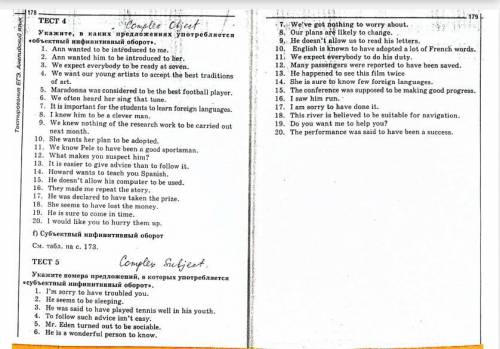 178
Тестирование ЕГЭ. Английский язык
ТЕСТ 4 Complex Object
Укажите, в каких предложениях употребляется
«объектный инфинитивный оборот».
1. Ann wanted to be introduced to me.
2. Ann wanted him to be introduced to her.
3. We expect everybody to be ready at seven.
4. We want our young artists to accept the best traditions
of art.
5. Maradonna was considered to be the best football player.
6. We often heard her sing that tune.
7. It is important for the students to learn foreign languages.
8. I knew him to be a clever man.
9. We knew nothing of the research work to be carried out
next month.
10. She wants her plan to be adopted.
11. We know Pele to have been a good sportsman.
12. What makes you suspect him?
13. It is easier to give advice than to follow it.
14. Howard wants to teach you Spanish.
15. He doesn't allow his computer to be used.
16. They made me repeat the story.
17. He was declared to have taken the prize.
18. She seems to have lost the money.
19. He is sure to come in time.
20. I would like you to hurry them up.
f) Субъектный инфинитивный оборот
См. табл. на с. 173.
ТЕСТ 5 Complex Subject.
Укажите номера предложений, в которых употребляется
«субъектный инфинитивный оборот».
1. I'm sorry to have troubled you.
2. He seems to be sleeping.
3. He was said to have played tennis well in his youth.
4. To follow such advice isn't easy.
5. Mr. Eden turned out to be sociable.
6. He is a wonderful person to know.
179
7. We've got nothing to worry about.
8. Our plans are likely to change.
9. He doesn't allow us to read his letters.
10. English is known to have adopted a lot of French words.
11. We expect everybody to do his duty.
12. Many passengers were reported to have been saved.
13. He happened to see this film twice
14. She is sure to know few foreign languages.
15. The conference was supposed to be making good progress.
16. I saw him run.
17. I am sorry to have done it.
18. This river is believed to be suitable for navigation.
19. Do you want me to help you?
20. The performance was said to have been a success.